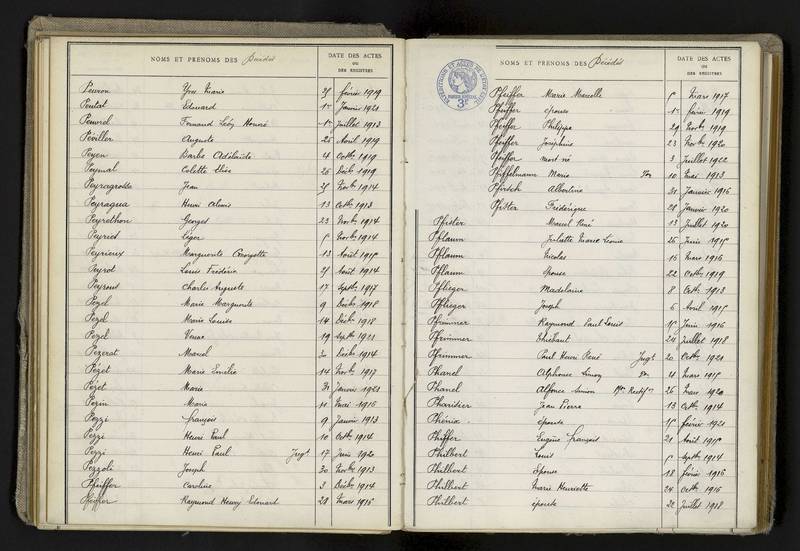 NOMS ET PRÉNOMS DES Décédés
DATE DES ACTES
OU
DES REGISTRES
Peuvon Yves Marie 25 février 1919
Peutat Edouard 1er Janvier 1921
Peuvrel Fernand Léon Honoré 1er Juillet 1913
Péviller Auguste 25 Avril 1919
Peyen Barbe Adélaïde 4 Octbre 1919
Peymal Colette Elise 26 Décbre 1919
Peyragrosse Jean 25 Novbre 1914
Peyragua Henri Alexis 13 Octbre 1913
Peyrethon Georges 23 Novbre 1914
Peyriot Léger 5 Novbre 1914
Peyrieux Marguerite Georgette 13 Août 1915
Peyrot Louis Frédéric 25 Août 1914
Peyront Charles Auguste 17 Septbre 1917
Pezel Marie Marguerite 9 Décbre 1918
Pezel Marie Louise 14 Décbre 1918
Pezel Veuve 19 Septbre 1921
Pezerat Marcel 30 Décbre 1914
Pezet Marie Emilie 14 Novbre 1917
Pezet Marie 31 Janvier 1921
Pezin Marie 11 Mai 1915
Pezzi François 9 Janvier 1913
Pezzi Henri Paul 10 Octbre 1914
Pezzi Henri Paul Jugt 17 Juin 1920
Pezzoli Joseph 30 Novbre 1913
Pfeiffer Caroline 3 Décbre 1914
Pfeiffer Raymond Henry Edouard 28 Mars 1915
NOMS ET PRÉNOMS DES Décédés
DATE DES ACTES
OU
DES REGISTRES
Pfeiffer Marie Marcelle 5 Mars 1917
Pfeiffer épouse 1er février 1919
Pfeiffer Philippe 29 Novbre 1919
Pfeiffer Joséphine 23 Novbre 1920
Pfeiffer mort né 3 Juillet 1922
Pfiffelmann Marie 10 Mai 1913
Pfirsch Albertine 31 Janvier 1916
Pfister Frédérique 29 Janvier 1920
Pfister Marcel René 13 Juillet 1920
Pflaum Juliette Marie Léonie 26 Juin 1915
Pflaum Nicolas 16 Mars 1916
Pflaum épouse 22 Octbre 1919
Pflieger Madelaine 8 Octbre 1913
Pflieger Joseph 6 Avril 1915
Pfrimmer Raymond Paul Louis 15 Juin 1916
Pfrimmer Thiébaut 24 Juillet 1918
Pfrimmer Paul Henri René Jugt 20 Octbre 1921
Phanel Alphonse Simon 4 Mars 1915
Phanel Alfonse Simon 26 Mars 1920
Pharisier Jean Pierre 13 Octbre 1914
Phénix épouse 15 février 1921
Phiffer Eugène François 21 Août 1915
Philbert Louis 5 Septbre 1914
Philbert Epouse 18 février 1916
Philbert Marie Henriette 24 Octbre 1916
Philbert épouse 22 Juillet 1918